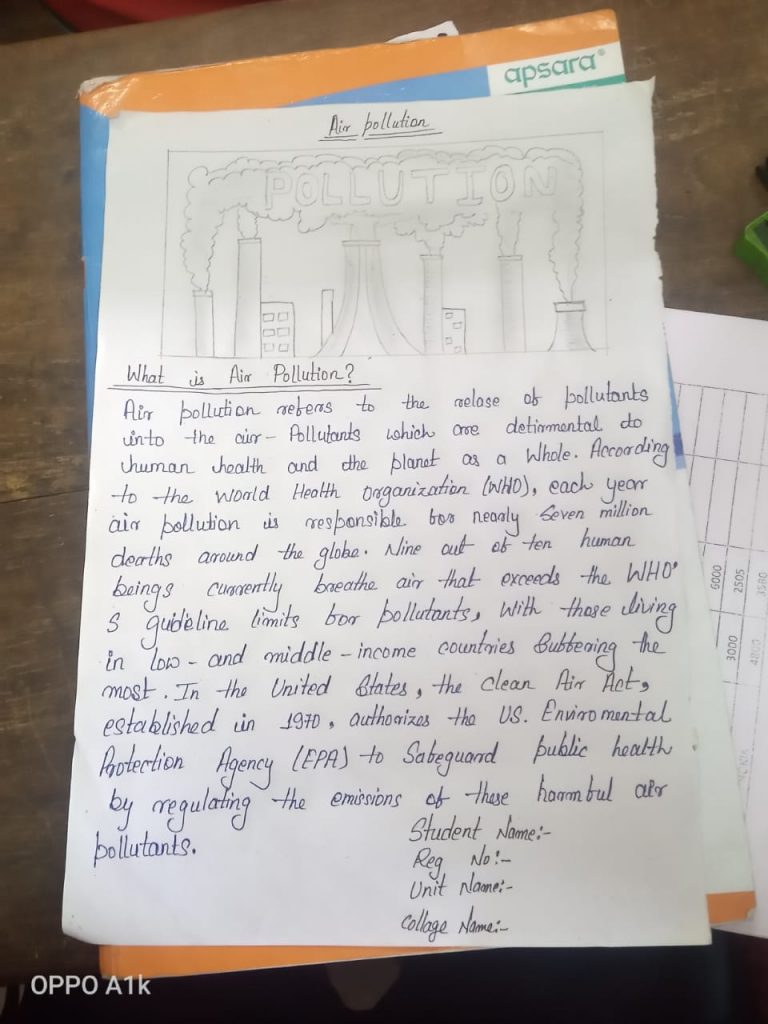 apsara
Air pollution
POLLUTION
What is Air Pollution?
Air pollution refers to the relose of pollutants
into the air - Pollutants which are detirmental do
human health and the planet as a Whole. According
to the World Health Organization (WHO), each year
air pollution is responsible for nearly Seven million
deaths around the globe. Nine out of ten human
beings currently breathe air that exceeds the WHO'
S guideline limits for pollutants, With those living
in low - and middle - income countries Suffering the
most. In the United States, the Clean Air Act,
established in 1970, authorizes the US. Enviromental
Protection Agency (EPA) to Safeguard public health
by regulating the emissions of these harmful air
pollutants.
Student Name:-
Reg No:-
Unit Name:-
Collage Name:-
6000
2505
3580
3000
4800
OPPO A1k